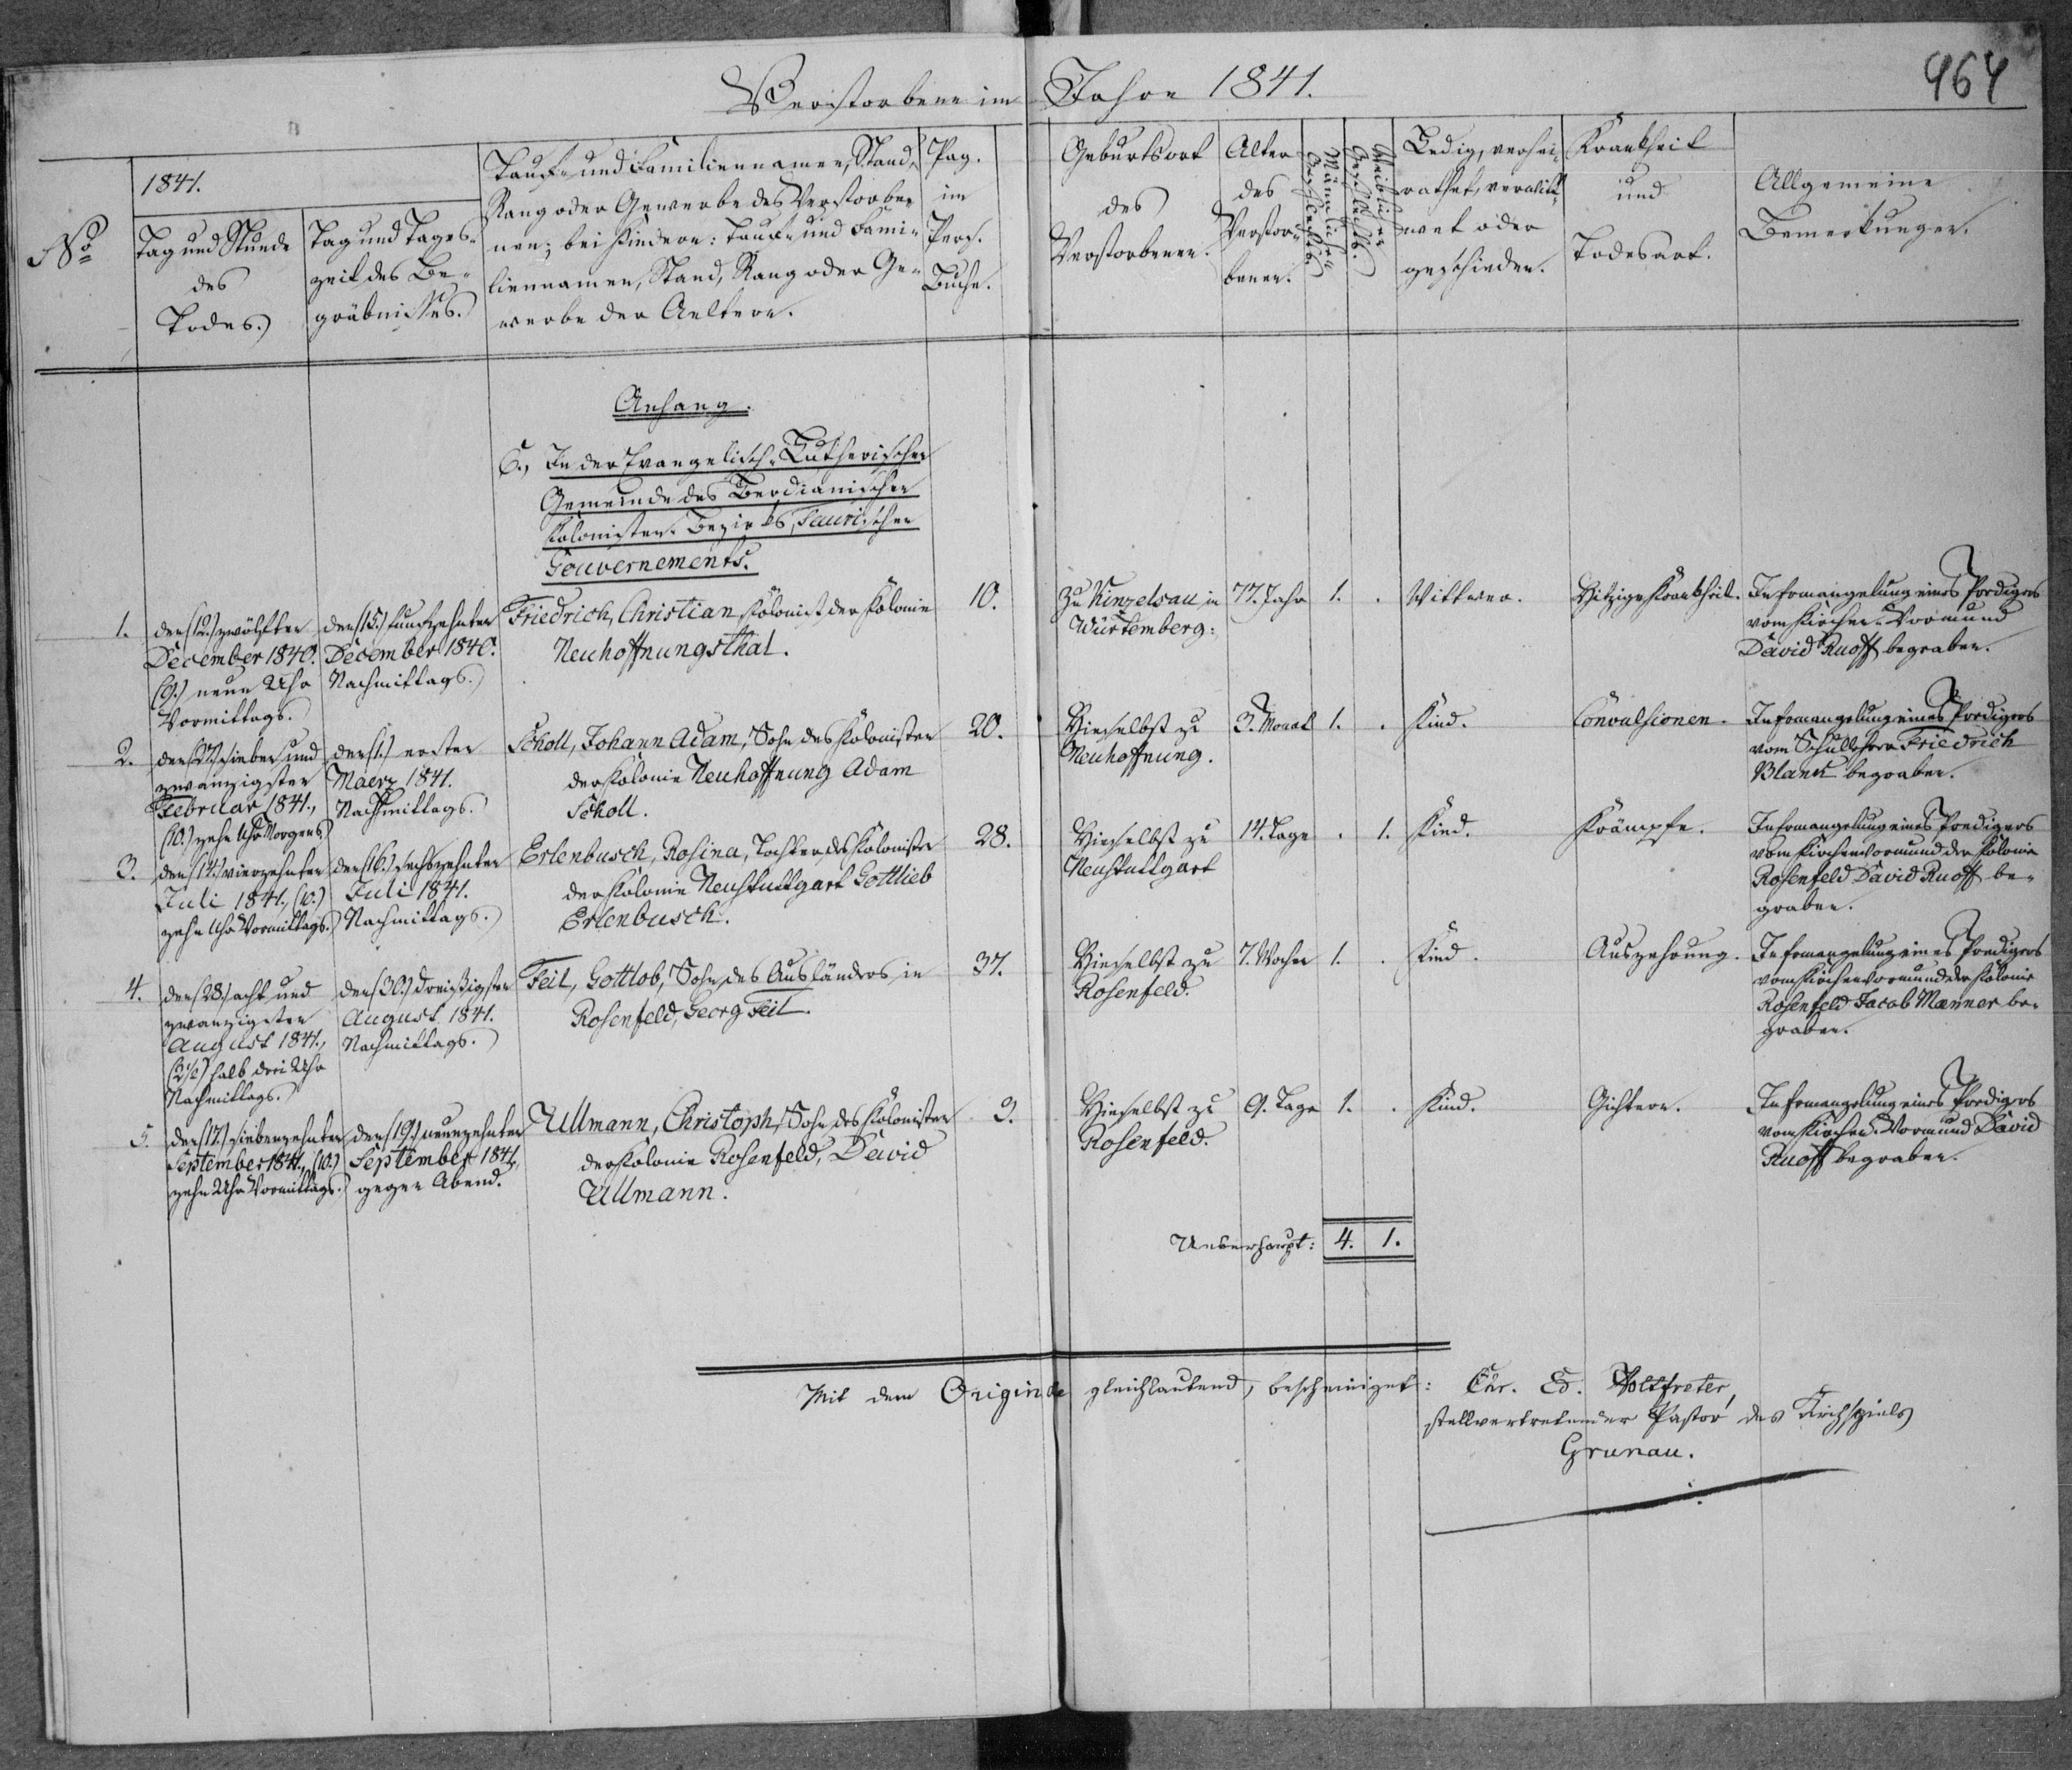 Verstorbene im Jahre 1841.
464
No
1841.
Tag und Stunde
des
Todes.
Tag und Tages-
zeit des Be-
gräbnisses.
Tauf- und Familiennamen, Stand,
Rang oder Gewerbe des Verstorbe-
nen; bei Kindern: Tauf- und Fami-
liennamen, Stand, Rang oder Ge-
werbe der Aeltern.
Pag.
im
Pers.
Buche.
Geburtsort
des
Verstorbenen.
Alter
des
Verstor-
benen.
Männlichen
Geschlechts.
Weiblichen
Geschlechts.
Ledig, verhei-
rathet, verwitt-
wet oder
geschieden.
Krankheit
und
Todesart.
Allgemeine
Bemerkungen.
Anhang.
C., In der Evangelisch-Lutherischen
Gemeinde des Berdianischen
Kolonisten-Bezirks, Taurischen
Gouvernements.
1.
den (12.) zwölften
December 1840.
(9.) neun Uhr
Vormittags.
den (15.) funfzehnten
December 1840.
Nachmittags.
Friedrich, Christian, Kolonist der Kolonie
Neuhoffnungsthal.
10.
Zu Kinzelsau in
Würtemberg.
77. Jahr
1.
.
Wittwer.
Hitzige Krankheit.
In Ermangelung eines Predigers
vom Kirchen-Vormund
David Ruoff begraben.
2.
den (27.) sieben und
zwanzigsten
Februar 1841.,
(10.) zehn Uhr Morgens
den (1.) ersten
Maerz 1841.
Nachmittags.
Scholl, Johann Adam, Sohn des Kolonisten
der Kolonie Neuhoffnung Adam
Scholl.
20.
Hieselbst zu
Neuhoffnung.
3. Monat
1.
.
Kind.
Convulsionen.
In Ermangelung eines Predigers
vom Schullehrer Friedrich
Blank begraben.
3.
den (14.) vierzehnten
Juli 1841., (10.)
zehn Uhr Vormittags.
den (16.) sechszehnten
Juli 1841.
Nachmittags.
Erlenbusch, Rosina, Tochter des Kolonisten
der Kolonie Neustuttgart Gottlieb
Erlenbusch.
28.
Hieselbst zu
Neustuttgart
14. Tage
.
1.
Kind.
Krämpfe.
In Ermangelung eines Predigers
vom Kirchenvormund der Kolonie
Rosenfeld David Ruoff be-
graben.
4.
den (28.) acht und
zwanzigsten
August 1841.,
(2½) halb drei Uhr
Nachmittags.
den (30.) dreißigsten
August 1841.
Nachmittags.
Feil, Gottlob, Sohn des Ausländers in
Rosenfeld, Georg Feil.
37.
Hieselbst zu
Rosenfeld.
7. Wochen
1.
.
Kind.
Auszehrung.
In Ermangelung eines Predigers
vom Kirchenvormund der Kolonie
Rosenfeld Jacob Manner be-
graben.
5.
den (17.) siebenzehnten
September 1841., (10.)
zehn Uhr Vormittags.
den (19.) neunzehnten
September 1841,
gegen Abend.
Ullmann, Christoph, Sohn des Kolonisten
der Kolonie Rosenfeld, David
Ullmann.
3.
Hieselbst zu
Rosenfeld.
9. Tage
1.
.
Kind.
Gichtern.
In Ermangelung eines Predigers
vom Kirchen-Vormund David
Ruoff begraben.
Ueberhaupt: 4. 1.
Mit dem Originale gleichlautend, bescheiniget: Chr. Ed. Holtfreter,
stellvertretender Pastor des Kirchspiels
Grunau.